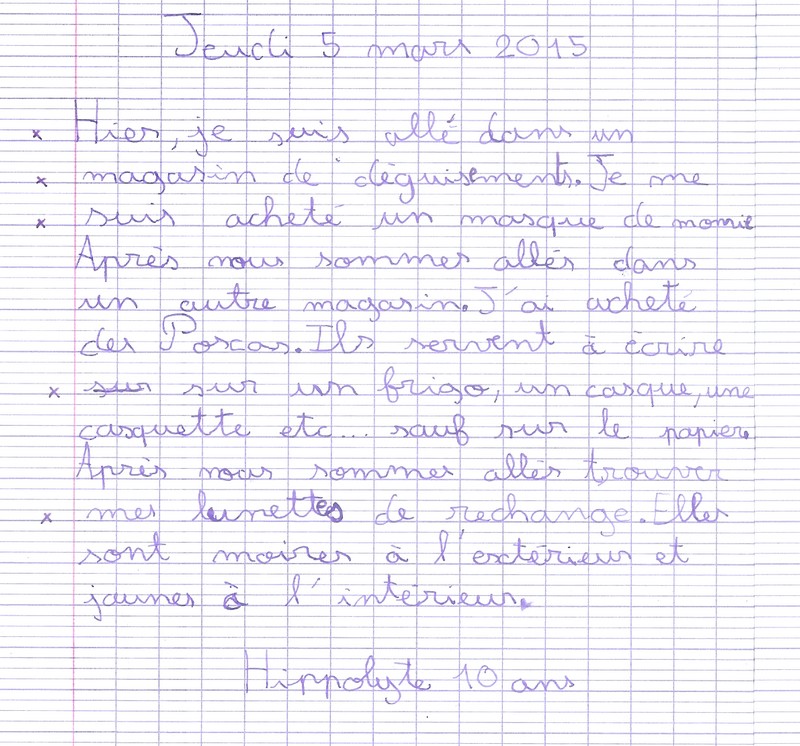 Jeudi 5 mars 2015
x Hier, je suis allé dans un
x magasin de déguisements. Je me
x suis acheté un masque de momie
Après nous sommes allés dans
un autre magasin. J'ai acheté
des Poscas. Ils servent à écrire
x sur sur un frigo, un casque, une
casquette etc... sauf sur le papier.
Après nous sommes allés trouver
x mes lunettes de rechange. Elles
sont noires à l'extérieur et
jaunes à l'intérieur.
Hippolyte 10 ans